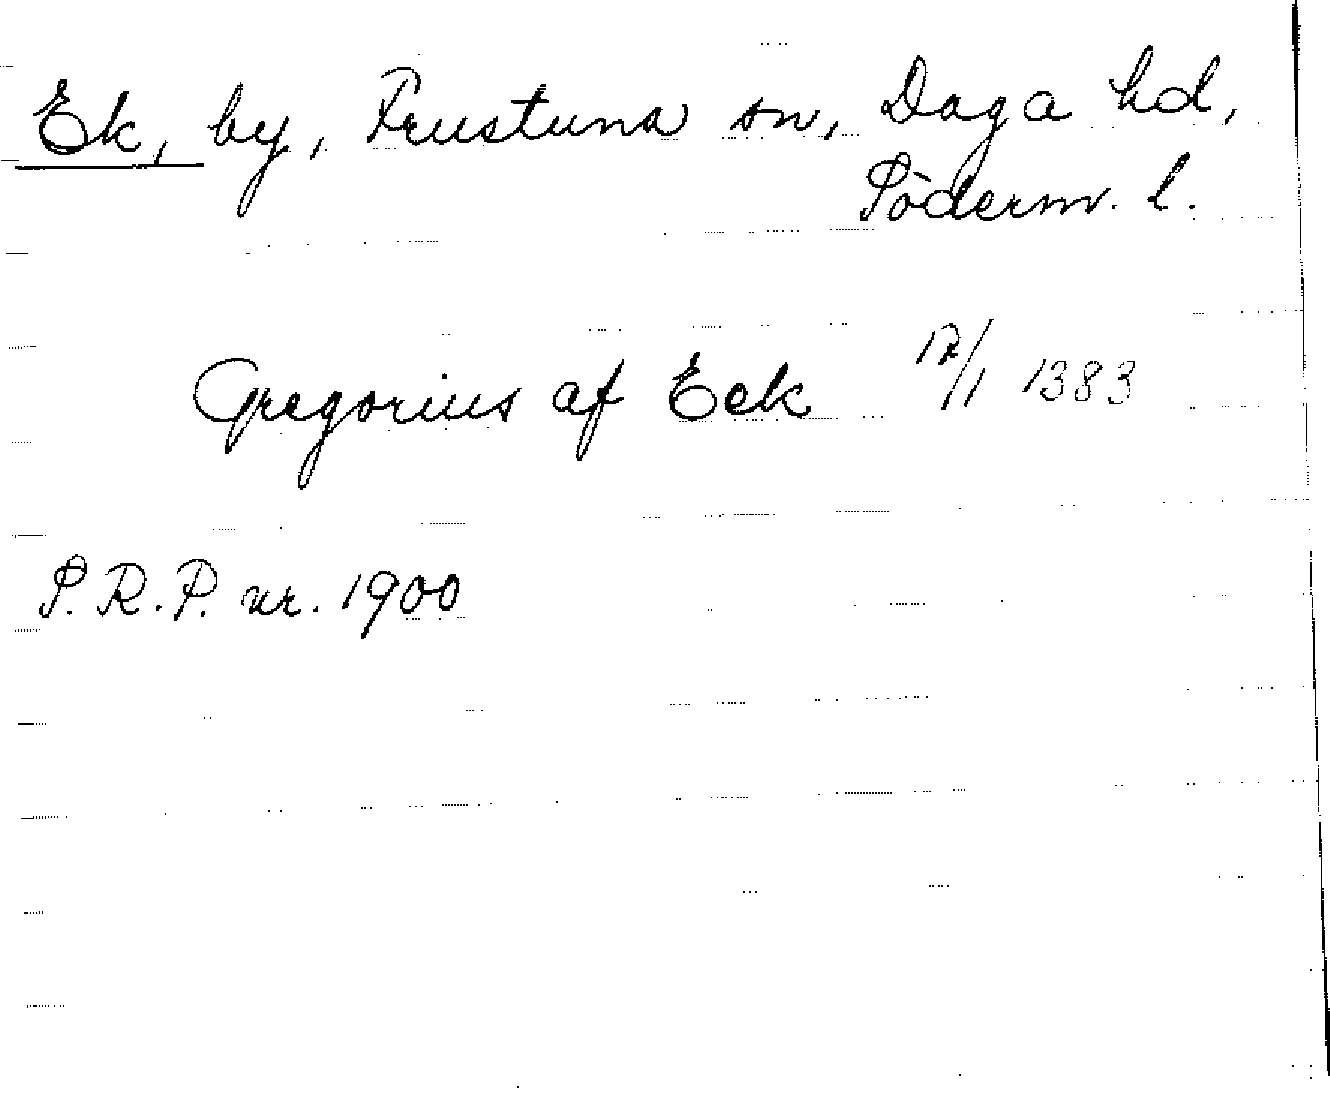 Ek, by, Frustuna sn, Daga hd,
Söderm. l.
Gregorius af Eck 17/1 1383
S.R.P. nr. 1900